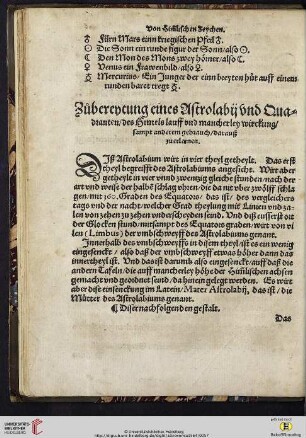 Von Himlischen Zeychen.
♂ Fürn Mars einn kriegischen Pfeil ♂.
☉ Die Sonn ein runde figur der Sonn/also ☉.
☾ Den Mon des Mons zwey hörner/also ☾.
♀ Venus ein Frawenbild/also ♀.
☿ Mercurius/Ein Junger der einn breyten hůt auff einem
runden haret tregt ☿.
Zůbereytung eines Astrolabij vnd Qua-
dranten/des Himels lauff vnd mancherley würckung/
sampt anderem gebrauch/darauß
zuerlernen.
DIß Astrolabium wirt in vier theyl getheylt. Das erst
theyl begreifft des Astrolabiums angesicht. Wirt aber
getheylt in vier vnd zwentzig gleiche stunden/nach der
art vnd weise der halbē schlag vhren/die da nit vber zwölff schla
gen/mit 360. Graden des Equators/ das ist/ des vergleichers
tags vnd der nacht/welcher Grad theylung mit Linien vnd za-
len von zehen zu zehen vnderscheyden seind. Vnd diß eusserst ort
der Glocken stund/mitsampt des Equators graden/wirt von vi-
len (Limbus) der vmbschweyff des Astrolabiums genant.
Innerhalb des vmbschweyffs in disem theyl/ist es ein wenig
eingesenckt/ also daß der vmbschweyff etwas höher dann das
innertheyl ist. Vnd das ist darumb also eingesenckt/auff daß die
andern Tafeln/die auff mancherley höhe der Himlischen achsen
gemacht vnd geordnet seind/da hinein gelegt werden. Es wirt
aber dise einsenckung im Latein/Mater Astrolabij, das ist/ die
Můtter des Astrolabiums genant.
¶ Diser nachfolgenden gestalt.
Das
UNIVERSITÄTS-
BIBLIOTHEK
HEIDELBERG
© Universitätsbibliothek Heidelberg